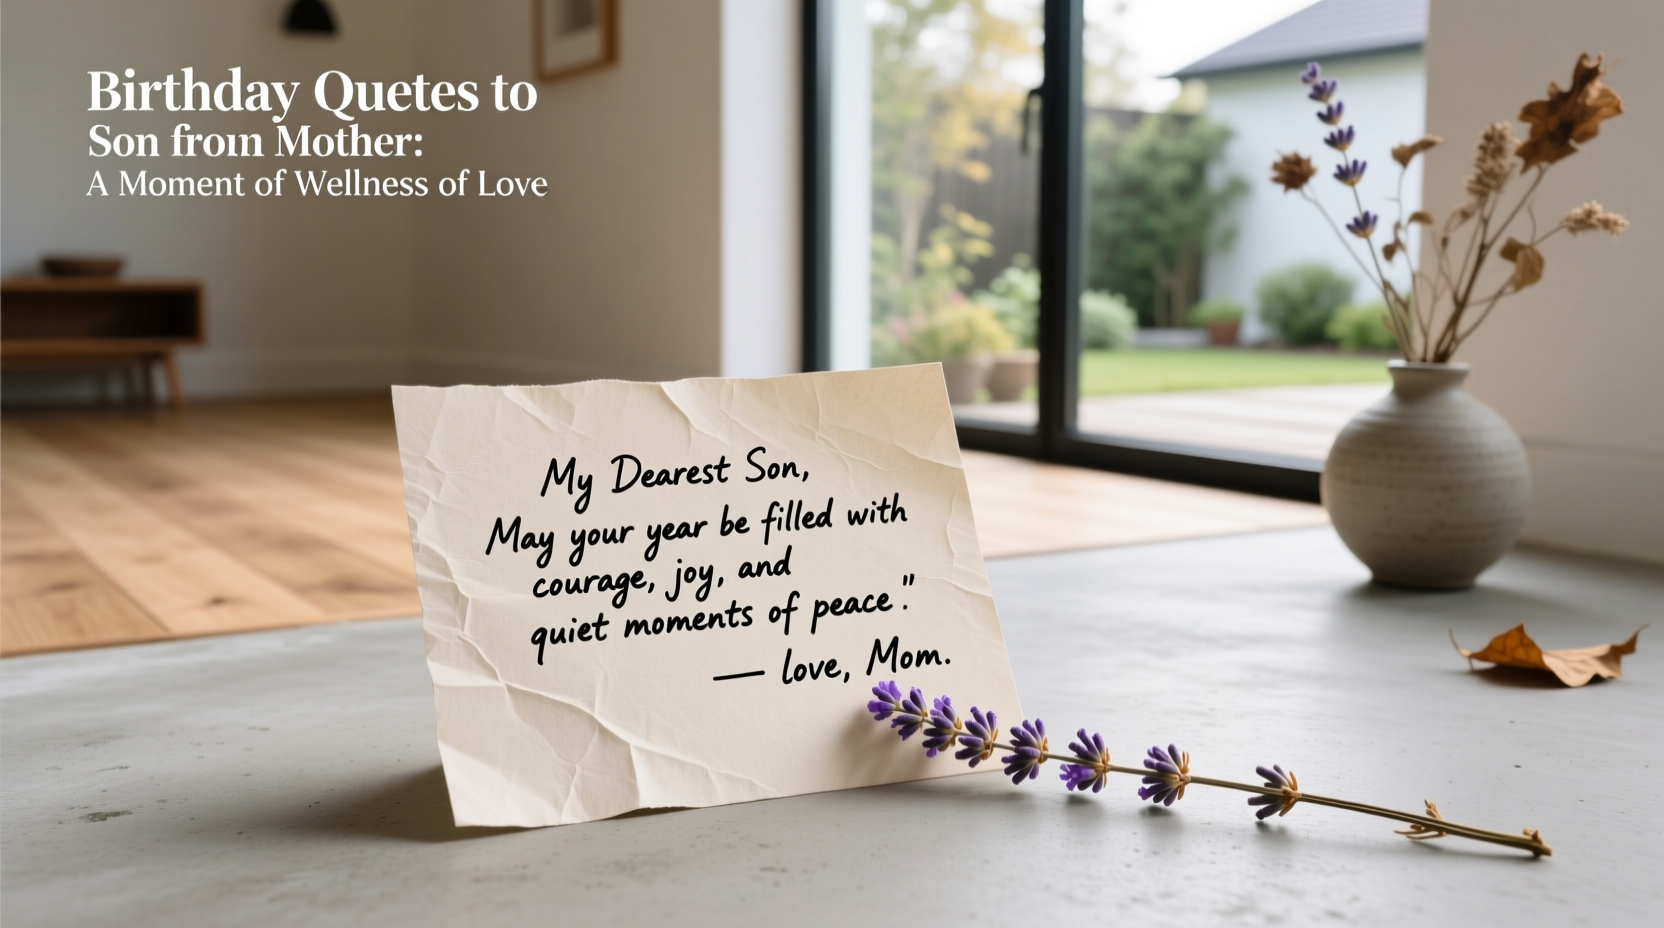 Birthday Quetes to
Son from Mother:
A Moment of Wellness of Love
My Dearest Son,
May your year be filled with
courage, joy, and
quiet moments of peace."
— love, Mom.